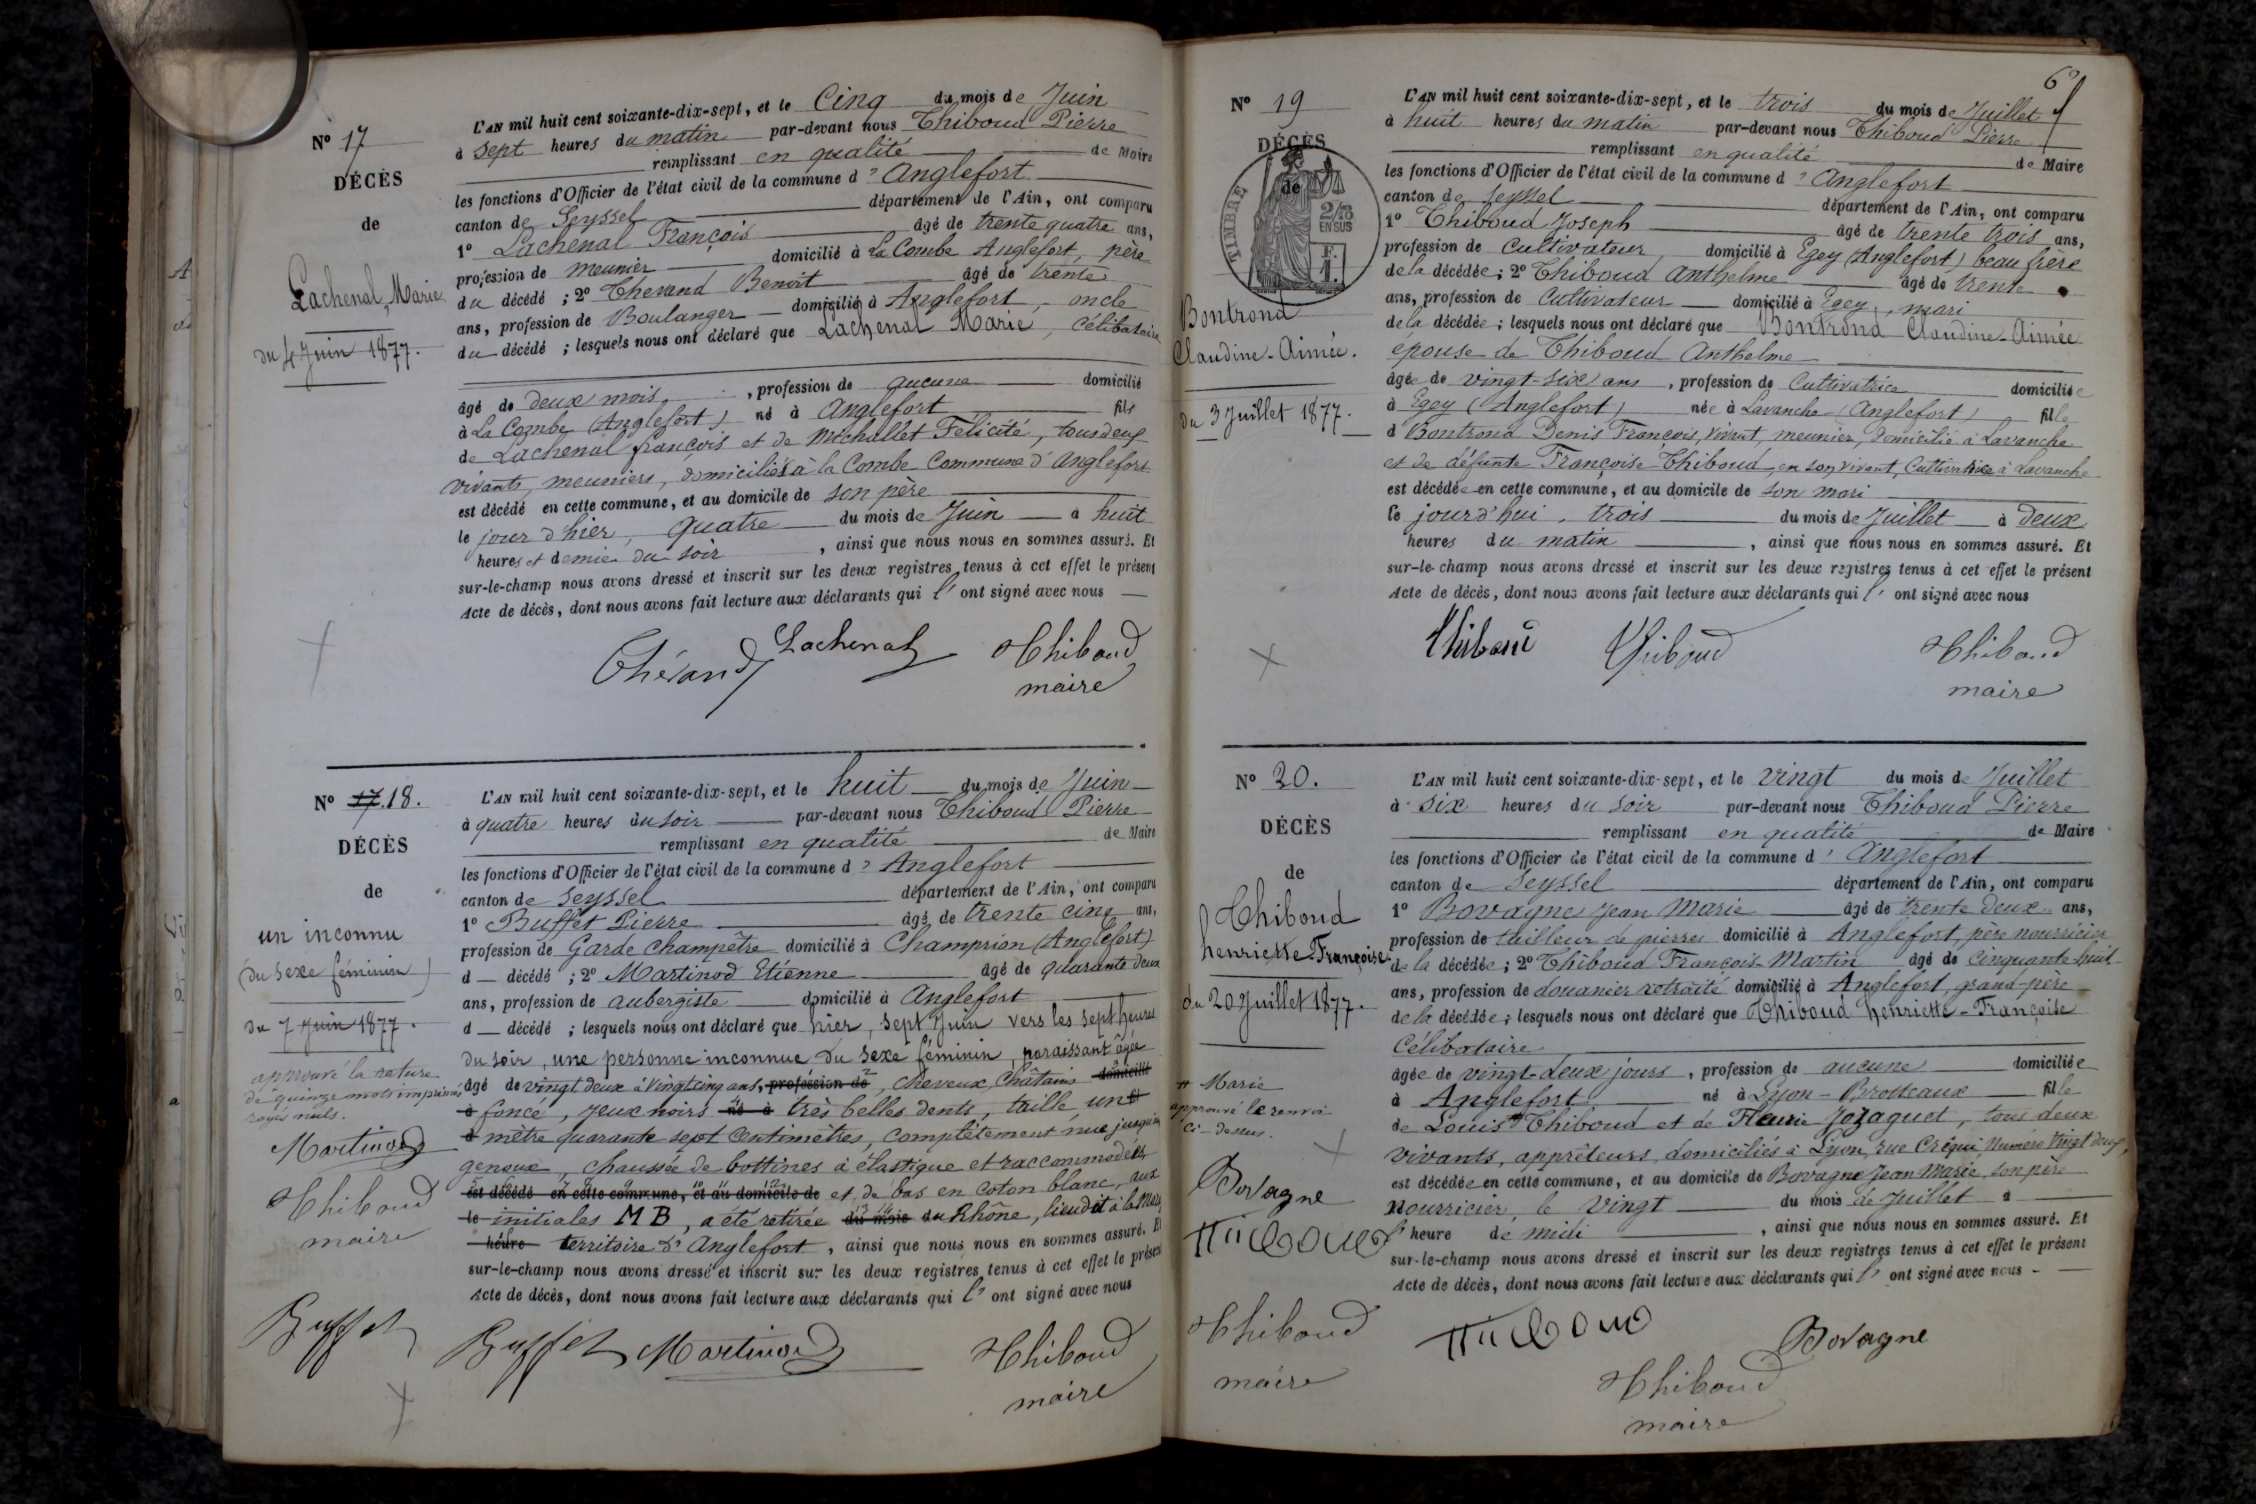 N° 17
DÉCÈS
de
Lachenal, Marie
du 4 Juin 1877.
L'AN mil huit cent soixante-dix-sept, et le Cinq du mois de Juin
à sept heures du matin par-devant nous Thiboud Pierre
remplissant en qualité de Maire
les fonctions d'Officier de l'état civil de la commune d'Anglefort
canton de Seyssel département de l'Ain, ont comparu
1° Lachenal François âgé de trente quatre ans,
profession de meunier domicilié à La Combe Anglefort, père
du décédé ; 2° Therand Benoit âgé de trente
ans, profession de Boulanger domicilié à Anglefort, oncle
du décédé ; lesquels nous ont déclaré que Lachenal Marie, célibataire
âgé de deux mois, profession de aucune domicilié
à La Combe (Anglefort) né à Anglefort fils
de Lachenal françois et de Michallet Félicité, tous deux
vivants, meuniers, domiciliés à la Combe Commune d'Anglefort
est décédé en cette commune, et au domicile de son père
le jour d'hier, quatre du mois de Juin à huit
heures et demie du soir, ainsi que nous nous en sommes assuré. Et
sur-le-champ nous avons dressé et inscrit sur les deux registres tenus à cet effet le présent
Acte de décès, dont nous avons fait lecture aux déclarants qui l'ont signé avec nous
Thérand Lachenal Thiboud
maire
N° 17. 18.
DÉCÈS
de
un inconnu
(du sexe féminin)
du 7 Juin 1877.
approuvé la rature
de quinze mots imprimés
rayés nuls.
Martinod
Thiboud
maire
Buffet
L'AN mil huit cent soixante-dix-sept, et le huit du mois de Juin
à quatre heures du soir par-devant nous Thiboud Pierre
remplissant en qualité de Maire
les fonctions d'Officier de l'état civil de la commune d'Anglefort
canton de Seyssel département de l'Ain, ont comparu
1° Buffet Pierre âgé de trente cinq ans,
profession de Garde champêtre domicilié à Champrion (Anglefort)
d décédé ; 2° Martinod Etienne âgé de quarante deux
ans, profession de aubergiste domicilié à Anglefort
d décédé ; lesquels nous ont déclaré que hier, sept Juin vers les sept heures
du soir, une personne inconnue du sexe féminin, paraissant âgée
âgé de vingt deux à vingt cinq ans, profession de, cheveux châtains domicilié
à foncé, yeux noirs né à très belles dents, taille, un fil
d mètre quarante sept centimètres, complètement nue jusqu'aux
genoux, chaussée de bottines à élastique et raccommodées,
est décédé en cette commune, et au domicile de et de bas en coton blanc, aux
le initiales M B, a été retirée du mois du Rhône, lieu dit à
heure territoire d'Anglefort, ainsi que nous nous en sommes assuré. Et
sur-le-champ nous avons dressé et inscrit sur les deux registres tenus à cet effet le présent
Acte de décès, dont nous avons fait lecture aux déclarants qui l'ont signé avec nous
Buffet Martinod Thiboud
maire
6
N° 19
DÉCÈS
de
TIMBRE
2/10
EN SUS
Bontrond
Claudine-Aimée.
du 3 Juillet 1877.
L'AN mil huit cent soixante-dix-sept, et le trois du mois de Juillet
à huit heures du matin par-devant nous Thiboud Pierre
remplissant en qualité de Maire
les fonctions d'Officier de l'état civil de la commune d'Anglefort
canton de Seyssel département de l'Ain, ont comparu
1° Thiboud Joseph âgé de trente trois ans,
profession de Cultivateur, domicilié à Egey (Anglefort) beau frère
de la décédée ; 2° Thiboud Anthelme âgé de trente
ans, profession de Cultivateur domicilié à Egey, mari
de la décédée ; lesquels nous ont déclaré que Bontrond Claudine-Aimée
épouse de Thiboud Anthelme
âgée de vingt-six ans, profession de Cultivatrice domiciliée
à Egey (Anglefort) née à Lavanche (Anglefort) fille
d Bontrond Denis François, vivant, meunier, domicilié à Lavanche
et de défunte Françoise Thiboud en son vivant, Cultivatrice à Lavanche
est décédée en cette commune, et au domicile de son mari
le jourd'hui, trois du mois de Juillet à deux
heures du matin, ainsi que nous nous en sommes assuré. Et
sur-le-champ nous avons dressé et inscrit sur les deux registres tenus à cet effet le présent
Acte de décès, dont nous avons fait lecture aux déclarants qui l'ont signé avec nous
Thiboud Thiboud Thiboud
maire
N° 20.
DÉCÈS
de
Thiboud
henriette-Françoise
du 20 Juillet 1877.
# Marie
approuvé le renvoi
ci-dessus.
Bovagne
Thiboud
Thiboud
maire
L'AN mil huit cent soixante-dix-sept, et le vingt du mois de Juillet
à six heures du soir par-devant nous Thiboud Pierre
remplissant en qualité de Maire
les fonctions d'Officier de l'état civil de la commune d'Anglefort
canton de Seyssel département de l'Ain, ont comparu
1° Bovagne Jean Marie âgé de trente deux ans,
profession de tailleur de pierres domicilié à Anglefort, père nourricier
de la décédée ; 2° Thiboud François-Martin âgé de cinquante huit
ans, profession de douanier retraité domicilié à Anglefort, grand-père
de la décédée ; lesquels nous ont déclaré que Thiboud henriette-Françoise
Célibataire
âgée de vingt-deux jours, profession de aucune domiciliée
à Anglefort né à Lyon-Brotteaux fille
de Louis # Thiboud et de Fleurie Jozaguet, tous deux
vivants, apprêteurs, domiciliés à Lyon, rue Créqui Numéro Vingt deux,
est décédée en cette commune, et au domicile de Bovagne Jean Marie, son père
Nourricier, le Vingt du mois de Juillet à
l'heure de midi, ainsi que nous nous en sommes assuré. Et
sur-le-champ nous avons dressé et inscrit sur les deux registres tenus à cet effet le présent
Acte de décès, dont nous avons fait lecture aux déclarants qui l'ont signé avec nous
Thiboud Bovagne
Thiboud
maire